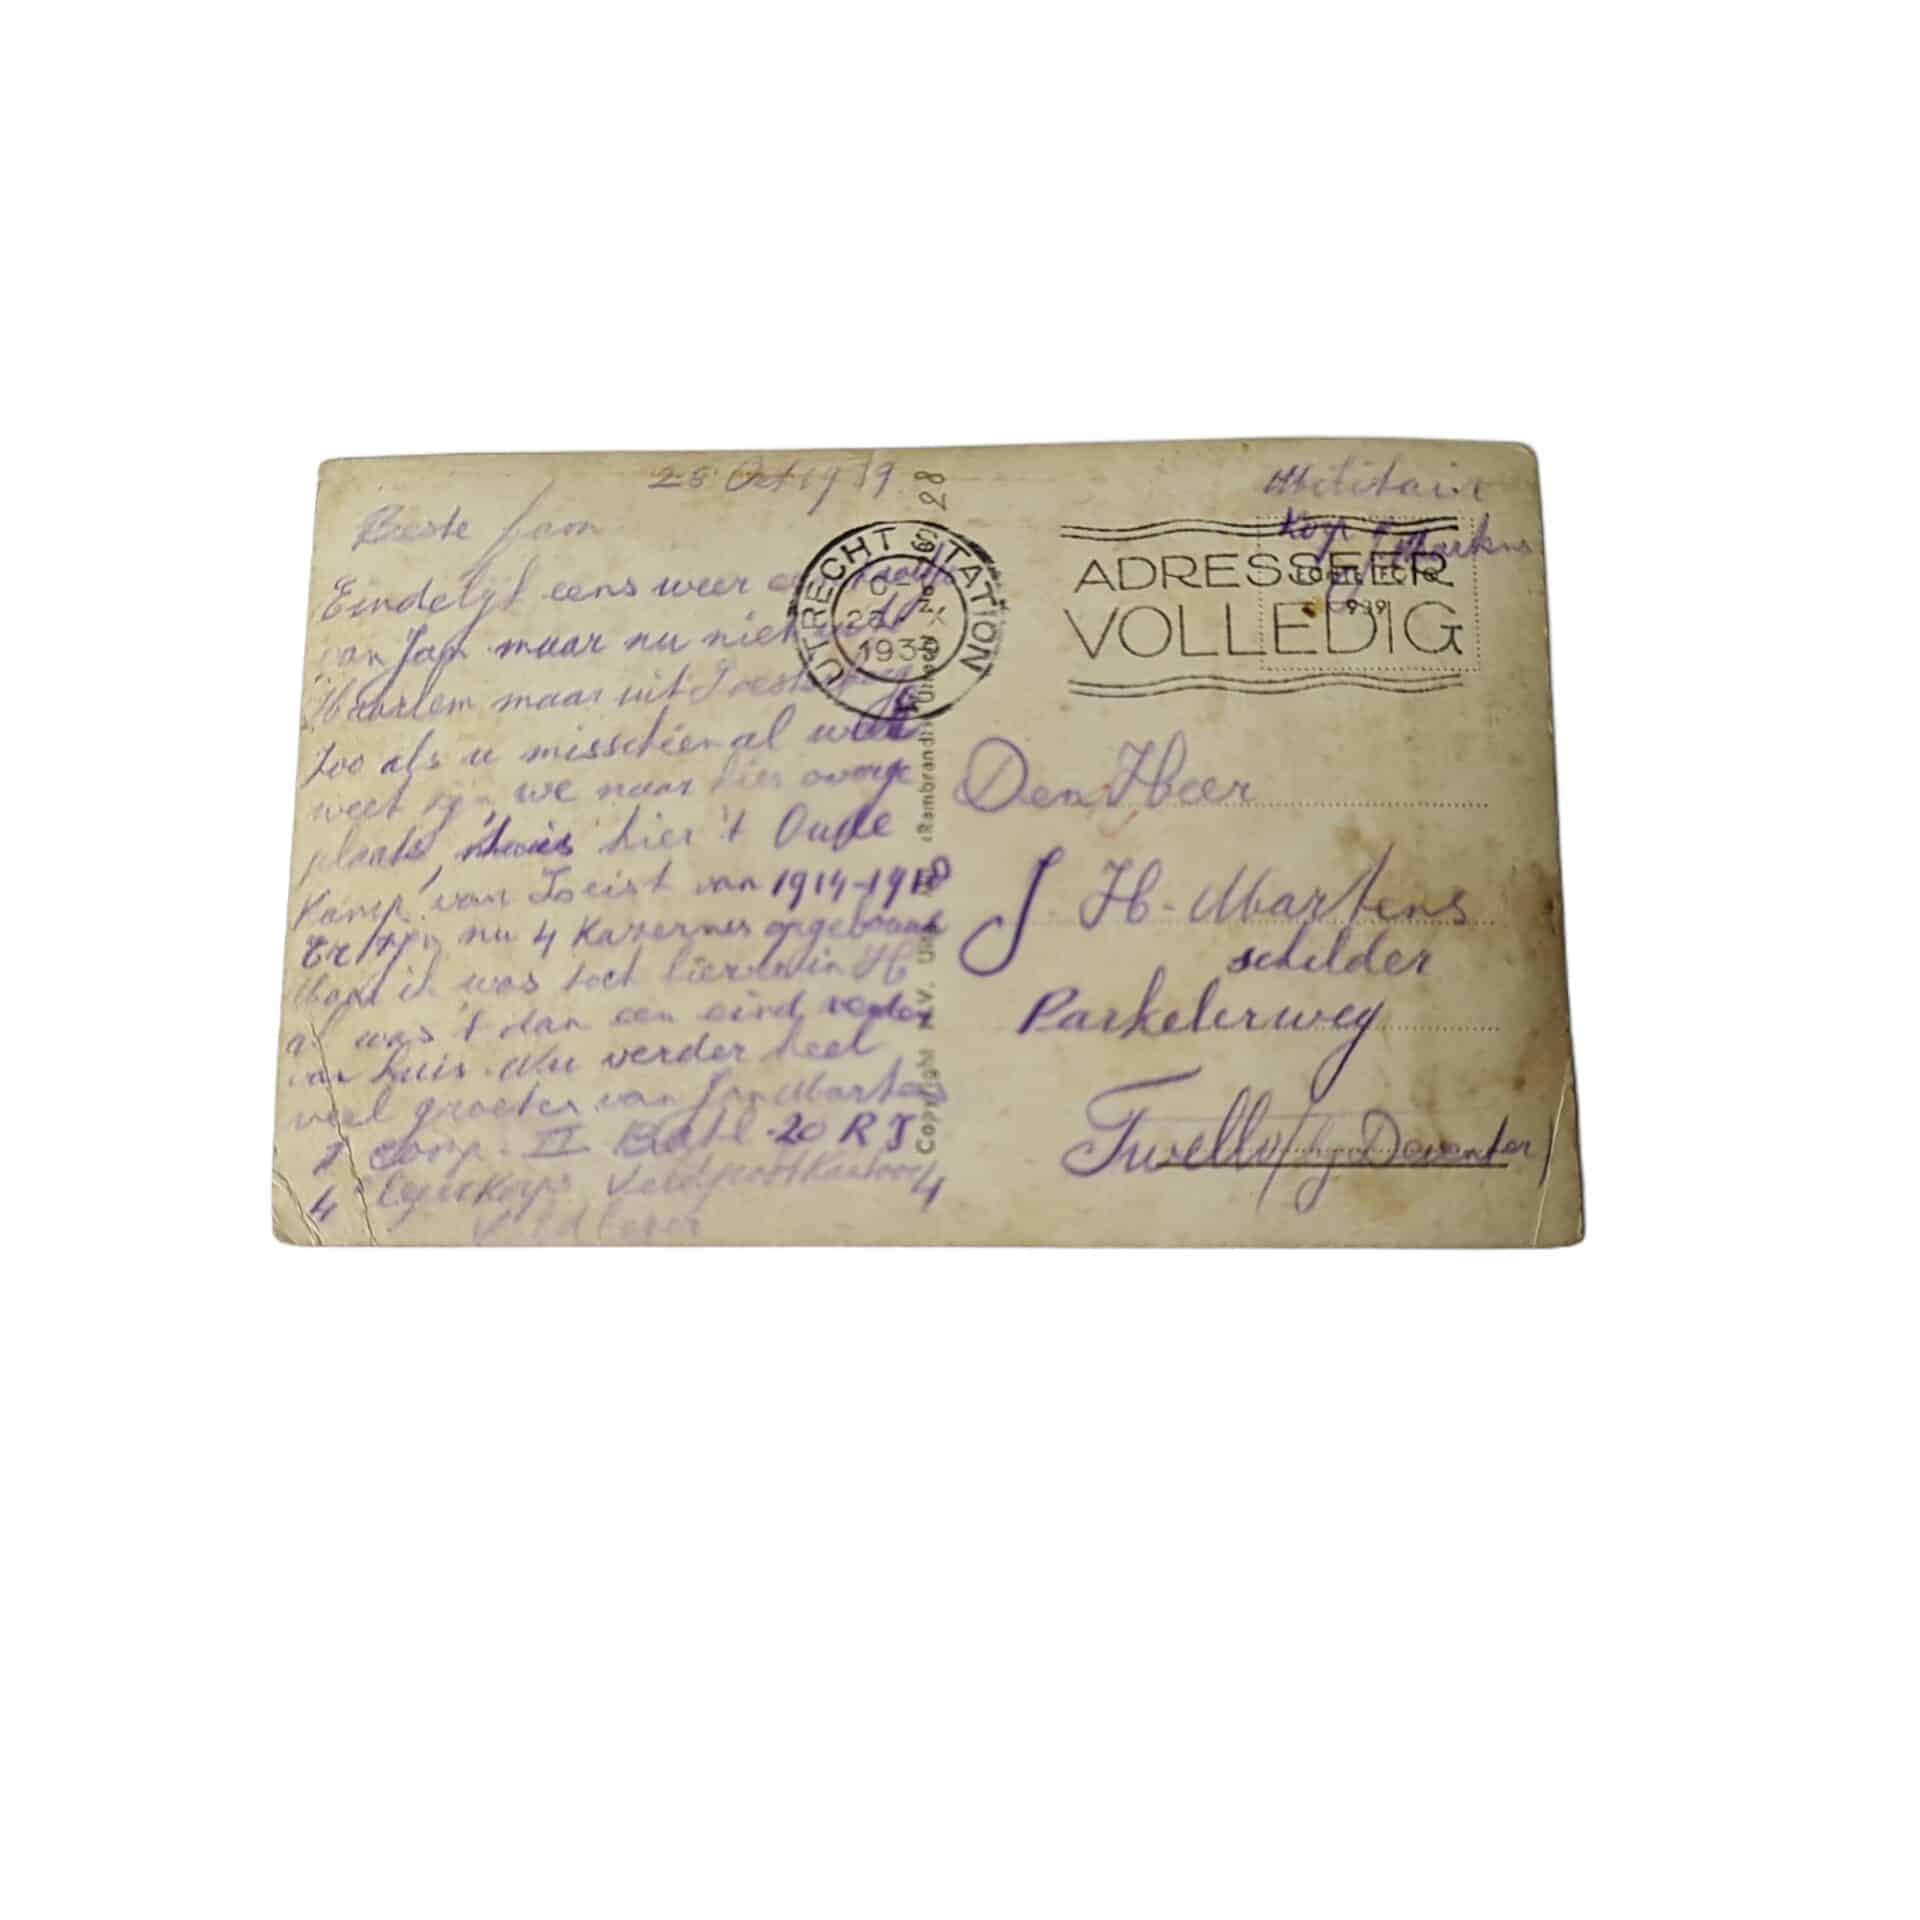 28 Oct 1939
Beste Joon
Eindelijk eens weer een
van Jan maar nu niet uit
Haarlem maar uit Soesterberg
Zoo als u misschien al wel
weet zijn we naar hier overge
plaats, hier 't Oude
Kamp van Zeist van 1914-1918
Er zijn nu 4 Kazernes opgebouwd
Maar ik was toch liever in H
al was 't dan een eind verder
van huis. Nu verder heel
veel groeten van Jan Martens
Comp. II Batl. 20 R I
4 Legerkorps Veldpostkantoor 4
Veldleger
UTRECHT STATION
1939
28
Copyright N.V. Uitg. Mij "Rembrandt" Utrecht
Militair
Korp J Martens
ADRESSEER
VOLLEDIG
ECHTE FOTO
939
Den Heer
J. H. Martens
schilder
Parkelerweg
Twello (bij Deventer)